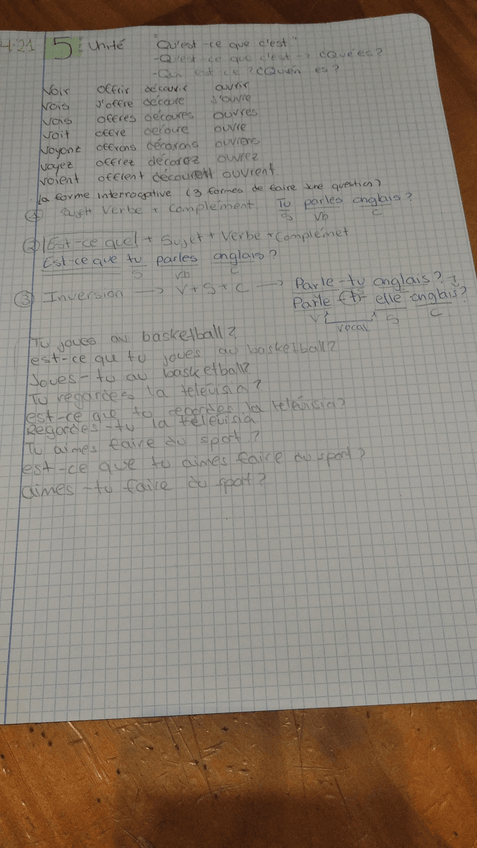 4-21 5 Unité "Qu'est-ce que c'est"
-Qu'est-ce que c'est → ¿Qué es?
-Qui est ce? ¿Quién es?
Voir offrir découvrir ouvrir
Vois J'offre J'ouvre
Vois offres ouvres
Voit offre ouvre
Voyons offrons
Voyez offrez ouvrez
voient offrent ouvrent
la forme interrogative (3 formes de faire une question)
① Verbe + Complement Tu parles anglais?
S Vb C
② Est-ce que + Sujet + Verbe + Complémet
Est-ce que tu parles anglais?
S Vb C
③ Inversion → V+S+C → Parle-tu anglais?
Parle elle anglais?
V vocal S C
Tu joues au basketball?
est-ce que tu joues au basketball?
Joues-tu au basketball?
Tu regardees la televisia?
est-ce que tu regardes la televisia?
Regardes-tu la televisia
Tu aimes faire du sport?
est-ce que tu aimes faire du sport?
aimes-tu faire du sport?